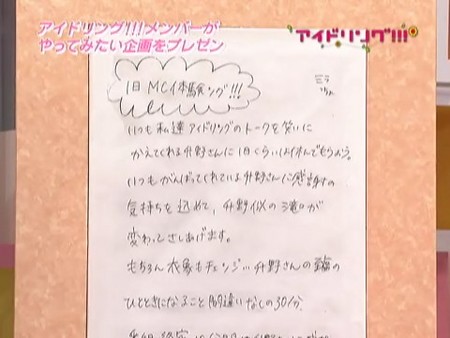 アイドリング!!!メンバーが
やってみたい企画をプレゼン
アイドリング!!!
1日MC体験ング!!!
いつも私達アイドリングのトークを笑いに
かえてくれる升野さんに1日くらいは休んでもらおう。
いつもがんばってくれている升野さんに感謝の
気持ちを込めて、升野似の滝口が
変わってさしあげます。
もちろん衣装もチェンジ…升野さんの
ひとときになること間違いなしの30分。